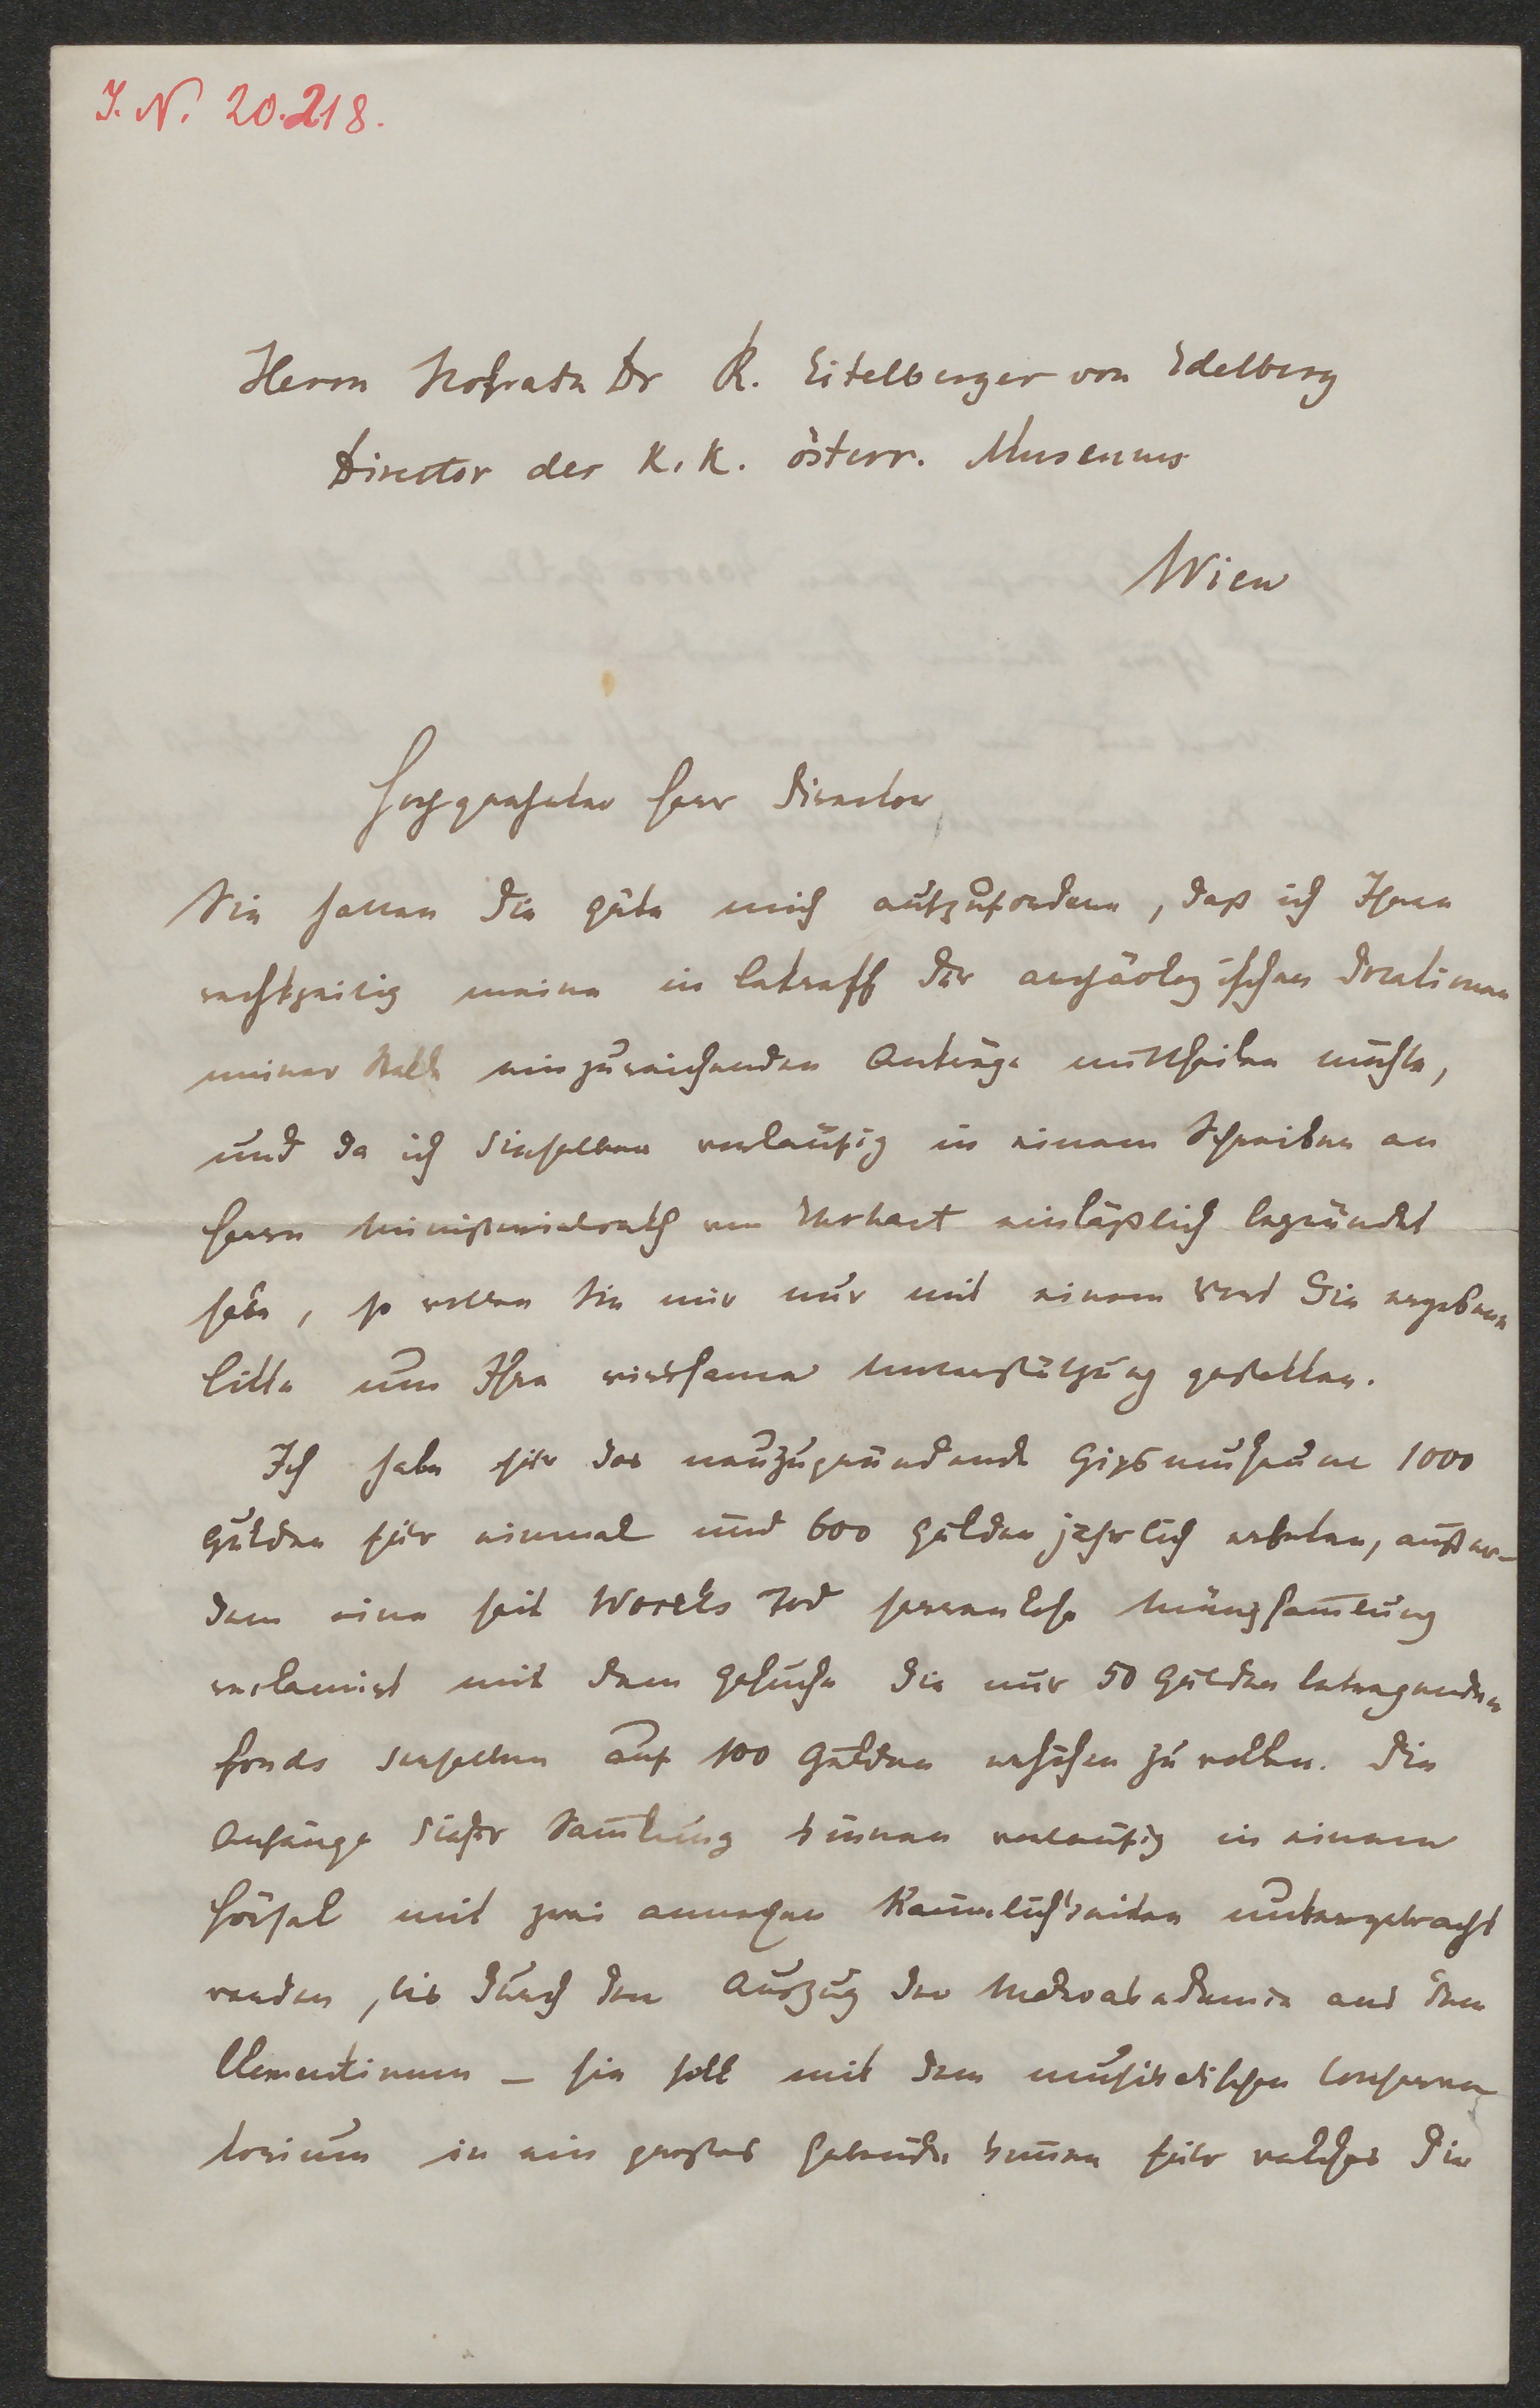 J. N. 20.218.
Herrn Hofrath Dr R. Eitelberger von Edelberg
Director des K. K. österr. Museums
Wien
Hochgeehrter Herr Director,
Sie hatten die Güte mich aufzufordern, daß ich Ihnen
rechtzeitig meine in Betreff der archäologischen
meiner Stelle einzureichenden Anträge mittheilen möchte,
und da ich dieselben vorläufig in einem Schreiben an
Herrn Ministerialrath von einläßlich begründet
habe, so wollen Sie mir nur mit einem Wort die ergebene
Bitte um Ihre wirksame Unterstützung gestatten.
Ich habe für das neuzugründende Gipsmuseum 1000
Gulden für einmal und 600 Gulden jährlich erbeten, außer-
dem eine seit Worels Tod herrenlose Münzsam̅lung
reclamirt mit dem Gesuche die nur 50 Gulden betragenden
Fonds derselben auf 100 Gulden erhöhen zu wollen. Die
Anfänge dieser Sam̅lung können vorläufig in einem
Hörsal mit zwei annexen Räumlichkeiten untergebracht
werden, bis durch den Auszug der Maleracademie aus dem
Clementinum – sie soll mit dem musikalischen Conserva-
torium in ein großes Gebäude kom̅en für welches die